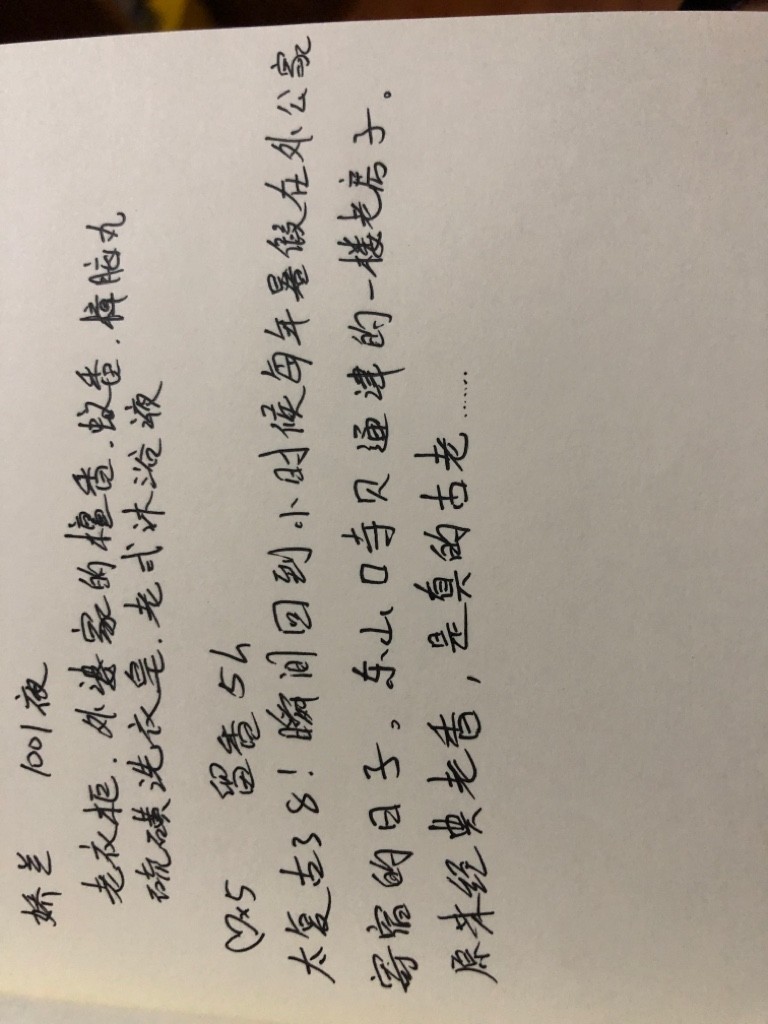 娇兰 1001夜
老衣柜.外婆家的檀香.蚊香.樟脑丸
硫磺洗衣皂.老式沐浴液
♡×5 留香5h
太复古了8!瞬间回到小时候每年暑假在外公家
寄宿的日子。东山口寺贝通津的一楼老房子。
原来经典老香,是真的古老……